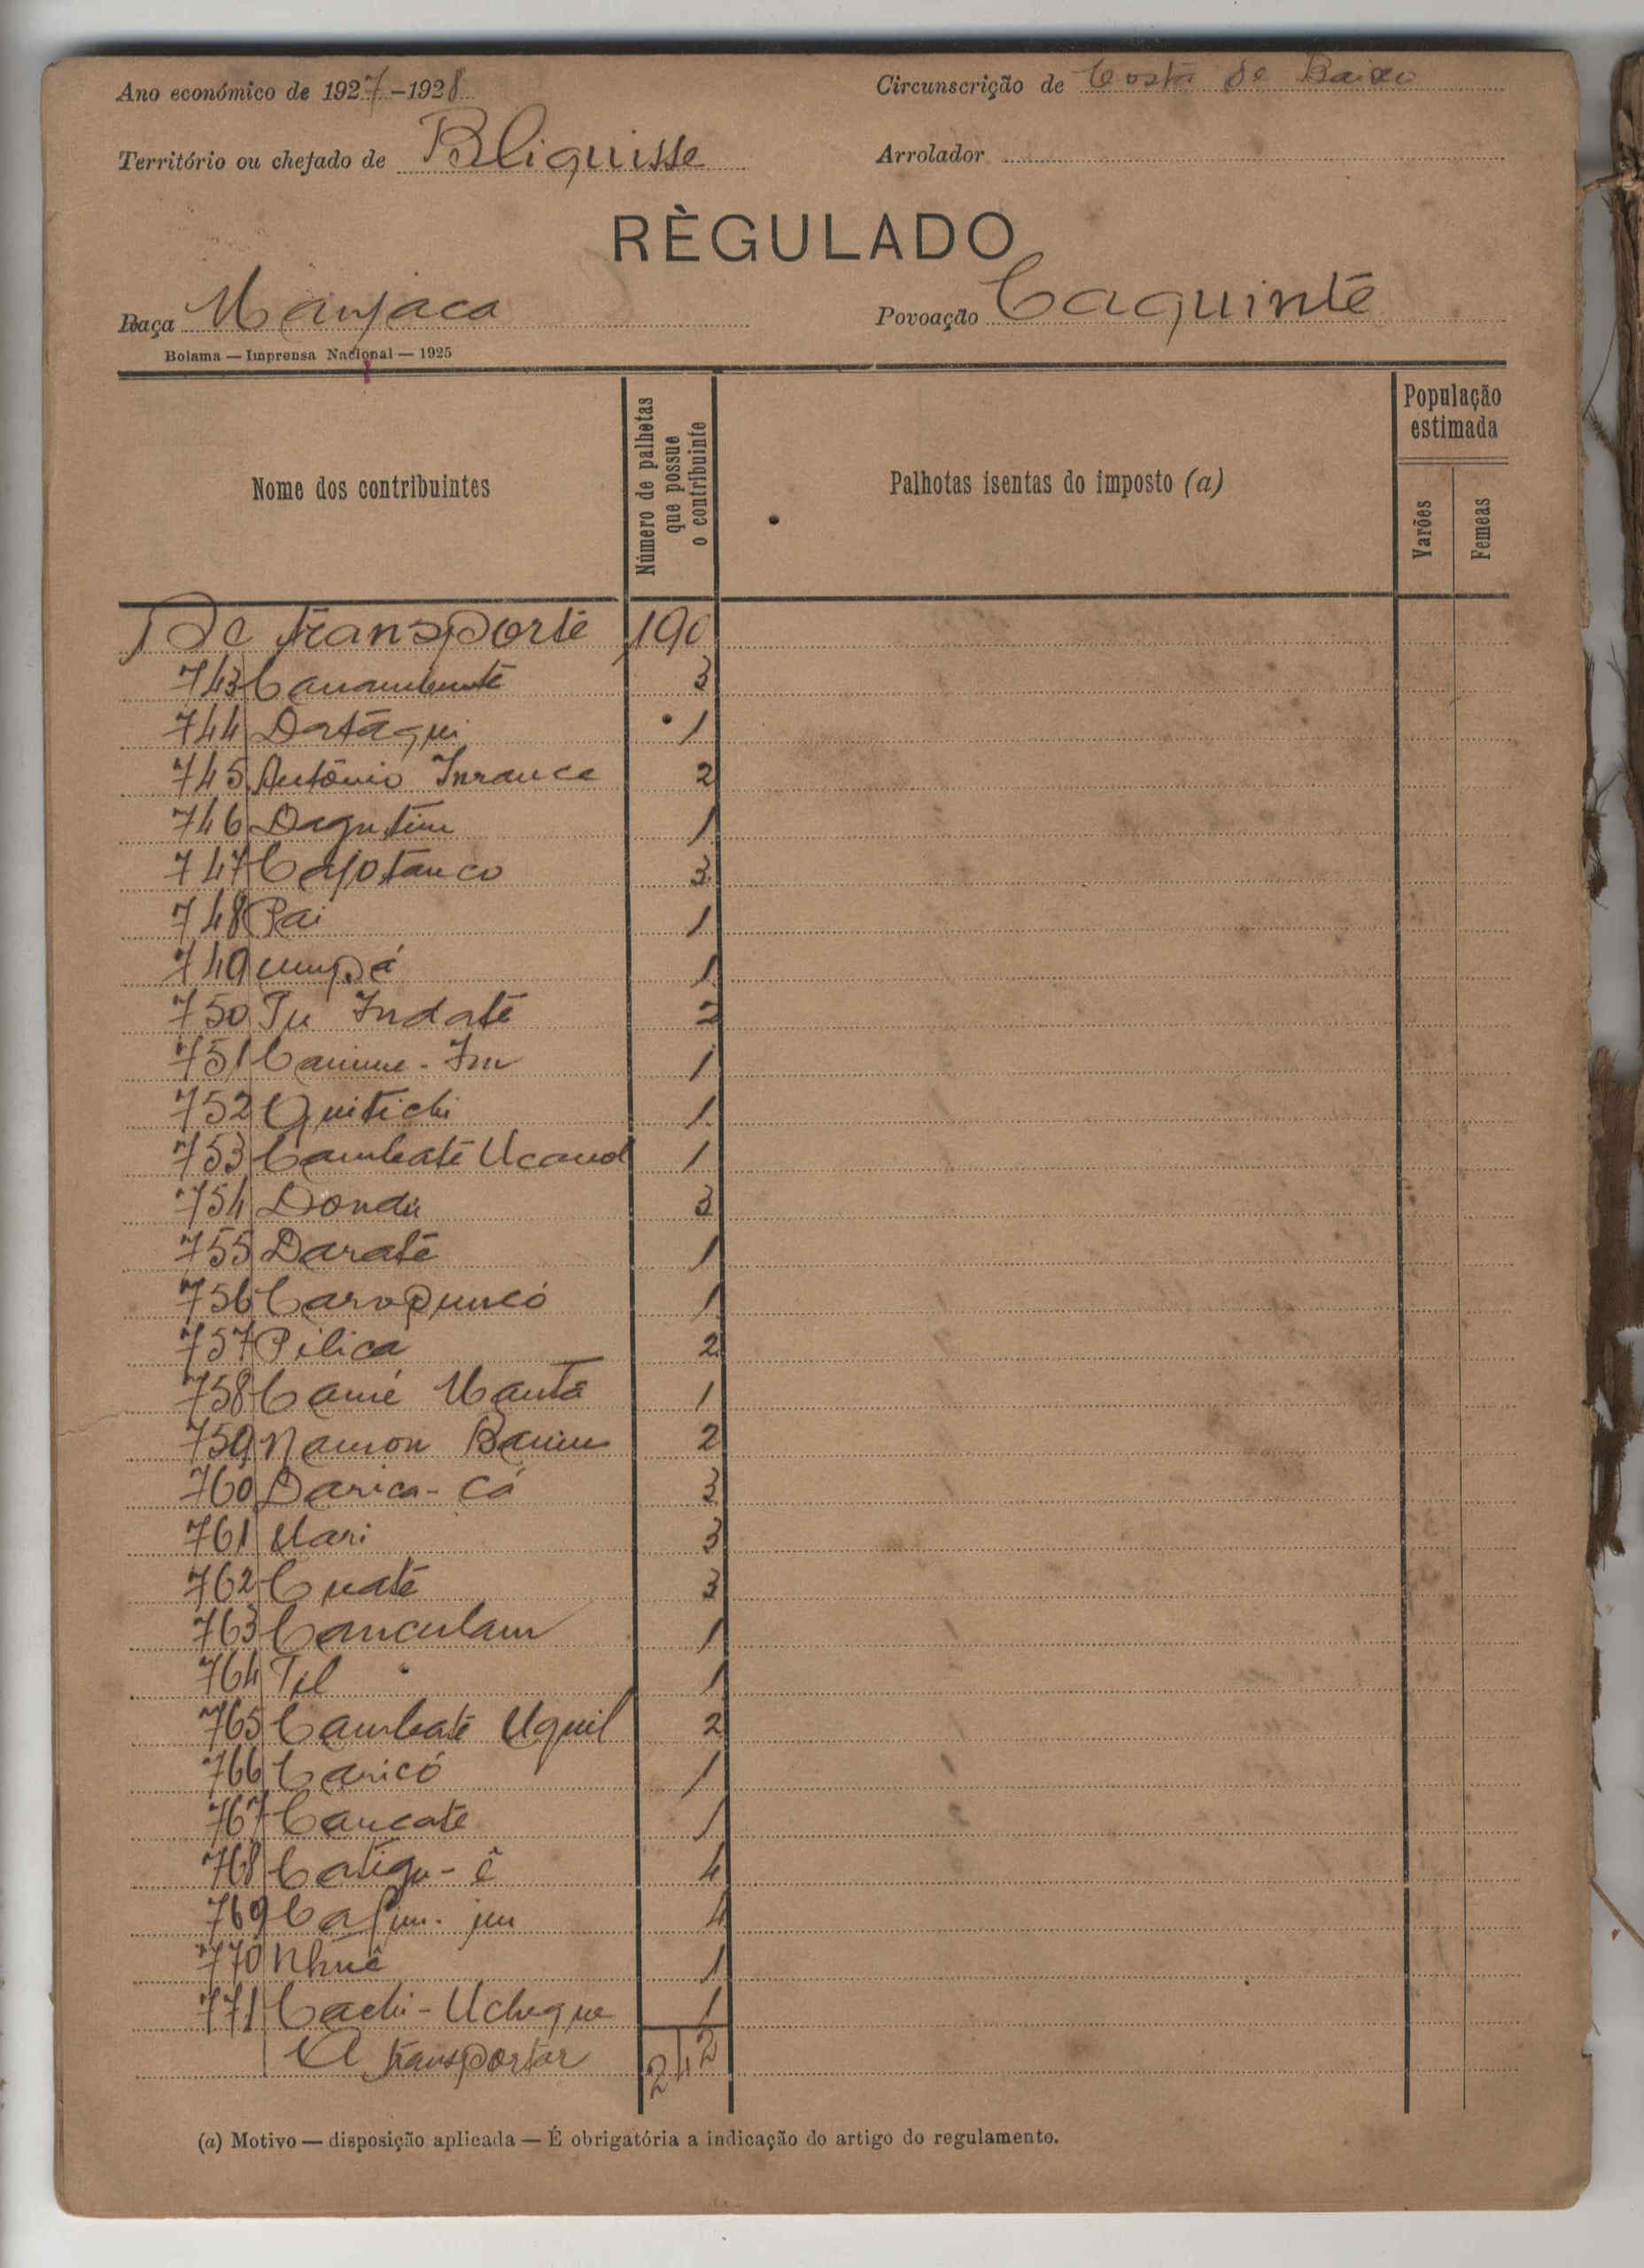 Ano económico de 1927-1928
Circunscrição de Costa de Baixo
Território ou chefado de Bliquisse
Arrolador
RÈGULADO
Raça Manjaca
Povoação Caquinte
Bolama — Imprensa Nacional — 1925
Nome dos contribuintes
Número de palhotas que possue o contribuinte
Palhotas isentas do imposto (a)
População estimada
Varões
Femeas
De transporte 190
743 3
744 Datáqui 1
745 António Inrance 2
746 Dagutim 1
747 Cajotanco 3
748 Pai 1
749 umpá 1
750 Pu Indate 2
751 1
752 Quitichi 1
753 Cambate Ucanol 1
754 Dondu 3
755 Darate 1
756 1
757 Pilica 2
758 Camé Manta 1
759 Namon 2
760 Darica-cá 3
761 Uari 3
762 Cuate 3
763 Canculam 1
764 Til 1
765 Cambate Uquil 2
766 Caricó 1
767 Cancate 1
768 Catigu-ê 4
769 4
770 Nhuê 1
771 Cachi-Ucheque 1
A transportar 242
(a) Motivo — disposição aplicada — É obrigatória a indicação do artigo do regulamento.